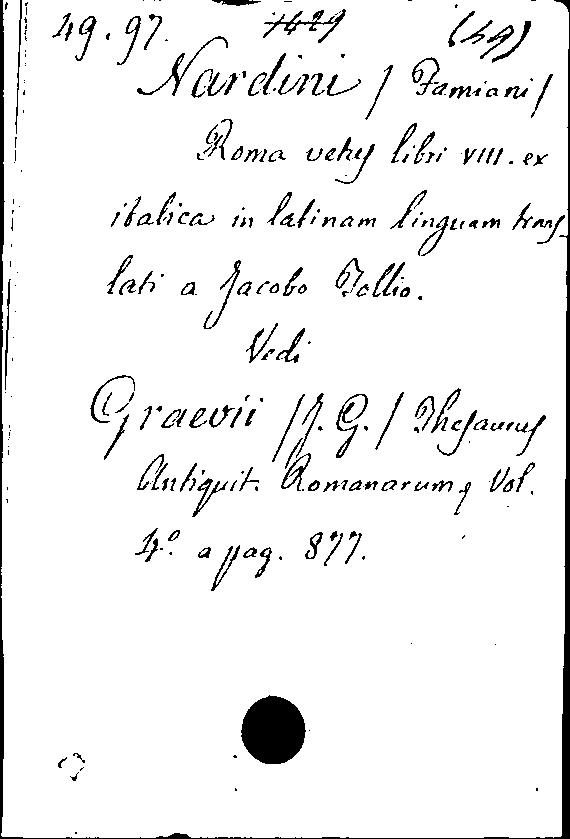 49.97. 1429 (49)
Nardini / Famiani /
Roma vetus libri VIII. ex
italica in latinam linguam trans-
lati a Jacobo Tollio.
Vedi
Graevii / J. G. / Thesaurus
Antiquit. Romanarum, Vol.
4.º a pag. 877.